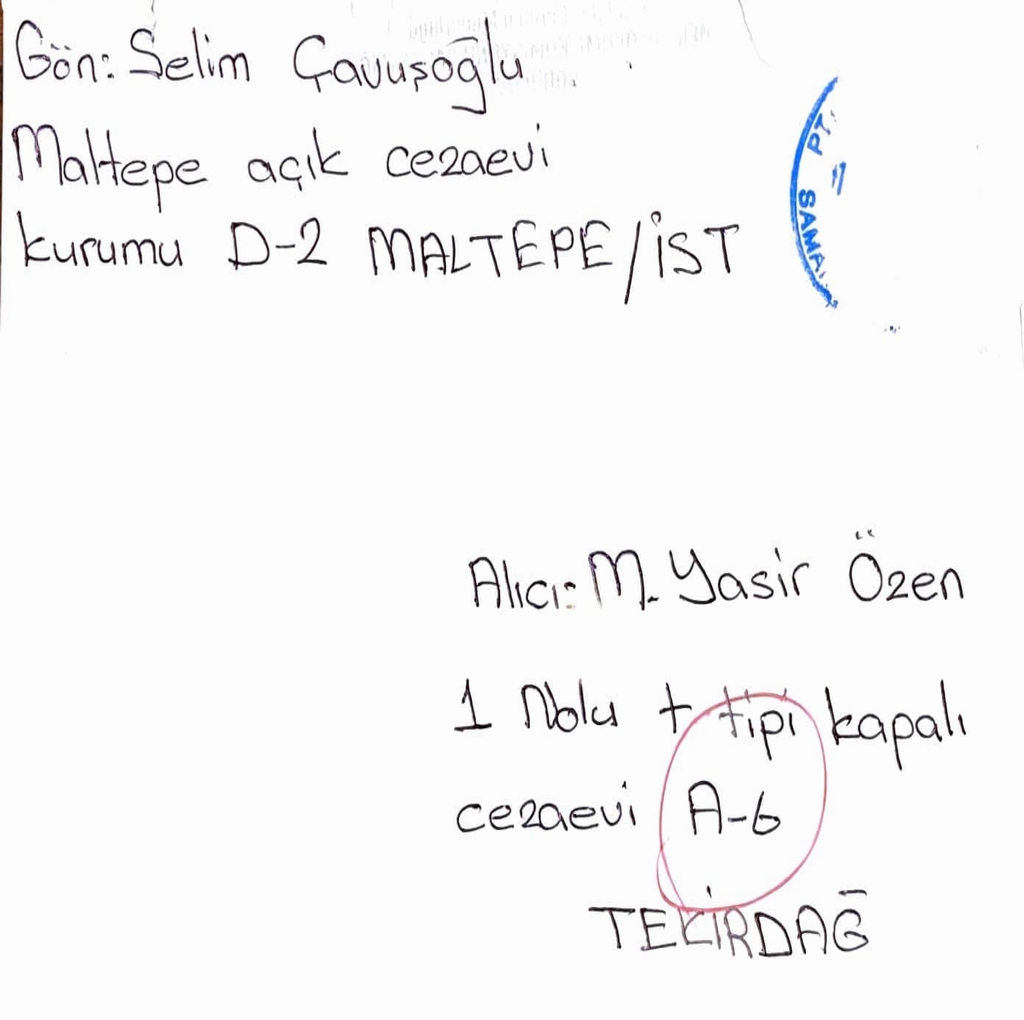 Gön: Selim Çavuşoğlu
Maltepe açık cezaevi
kurumu D-2 MALTEPE/İST
Alıcı: M. Yasir Özen
1 Nolu t tipi kapalı
cezaevi A-6
TEKİRDAĞ